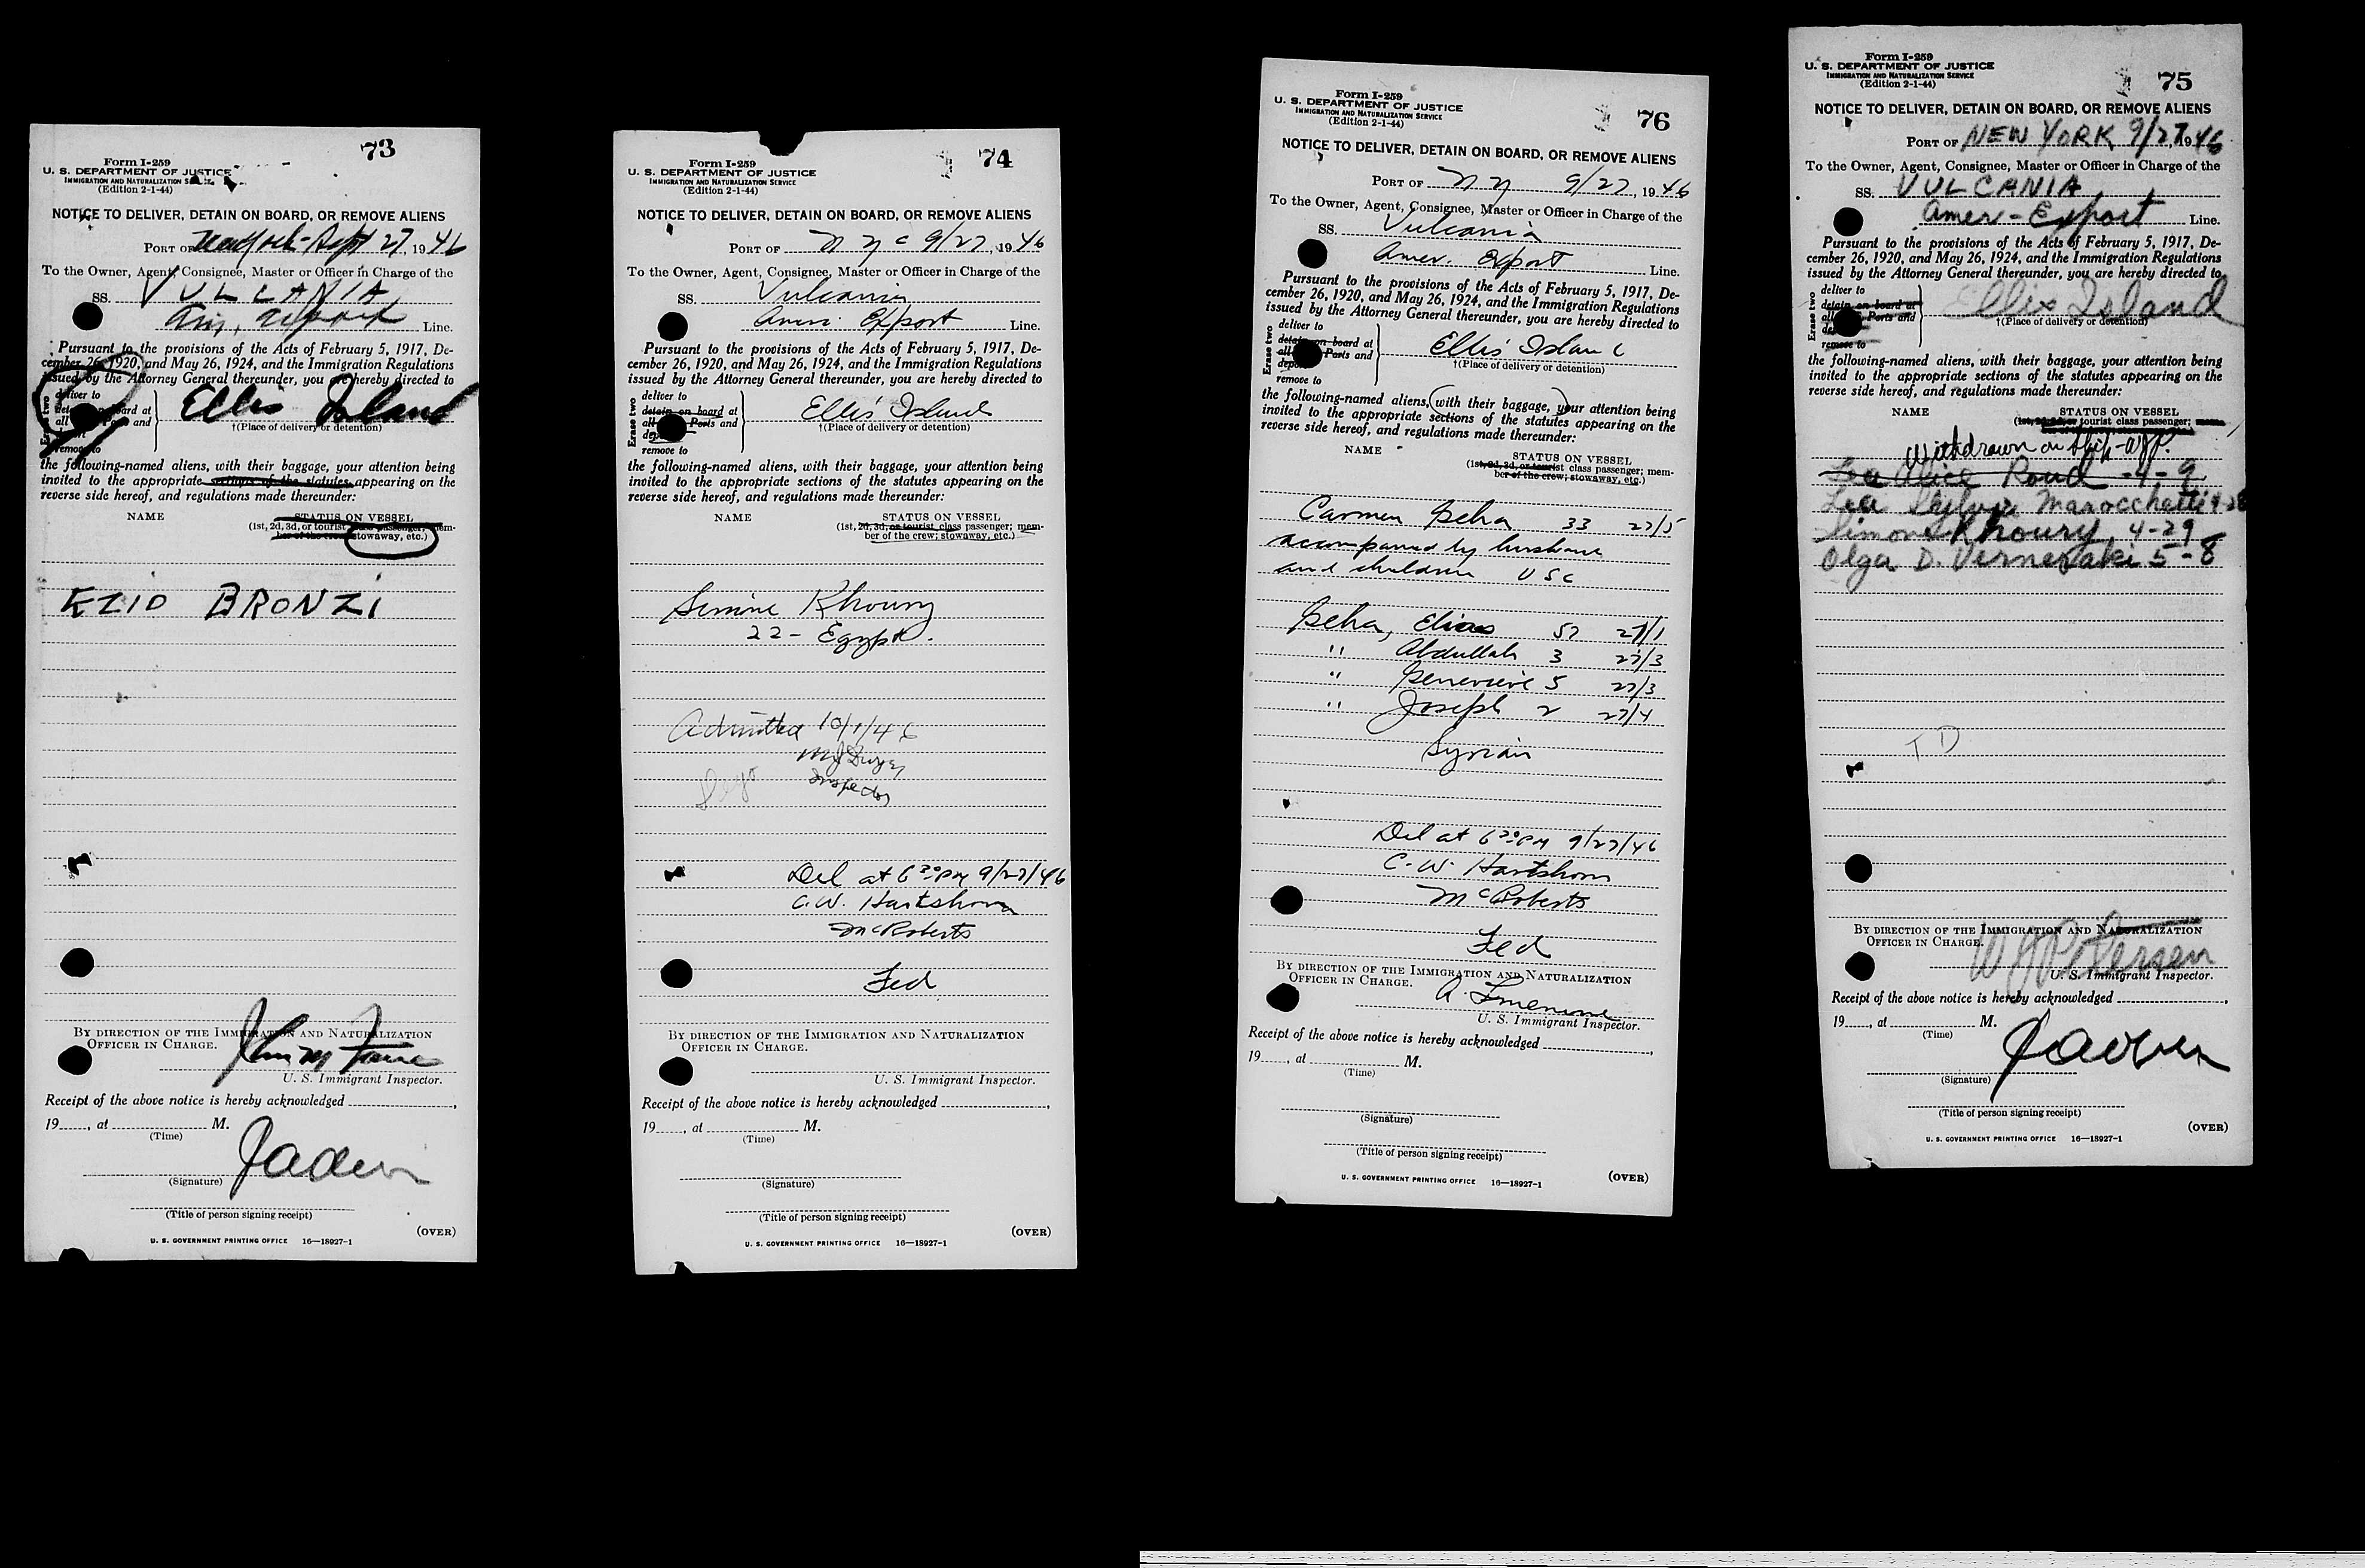 73
Form I-259
U. S. DEPARTMENT OF JUSTICE
IMMIGRATION AND NATURALIZATION SERVICE
(Edition 2-1-44)
NOTICE TO DELIVER, DETAIN ON BOARD, OR REMOVE ALIENS
PORT OF Sept 27, 1946
To the Owner, Agent, Consignee, Master or Officer in Charge of the
SS. VULCANIA
Am. Export Line.
Pursuant to the provisions of the Acts of February 5, 1917, De-
cember 26, 1920, and May 26, 1924, and the Immigration Regulations
issued by the Attorney General thereunder, you are hereby directed to
Erase two
deliver to
detain on board at
all Ports and
deport
remove to
Ellis Island
†(Place of delivery or detention)
the following-named aliens, with their baggage, your attention being
invited to the appropriate sections of the statutes appearing on the
reverse side hereof, and regulations made thereunder:
NAME STATUS ON VESSEL
(1st, 2d, 3d, or tourist class passenger; mem-
ber of the crew; stowaway, etc.)
EZIO BRONZI
BY DIRECTION OF THE IMMIGRATION AND NATURALIZATION
OFFICER IN CHARGE.
U. S. Immigrant Inspector.
Receipt of the above notice is hereby acknowledged
19, at M.
(Time)
(Signature)
(Title of person signing receipt)
(OVER)
U. S. GOVERNMENT PRINTING OFFICE 16—18927-1
74
Form I-259
U. S. DEPARTMENT OF JUSTICE
IMMIGRATION AND NATURALIZATION SERVICE
(Edition 2-1-44)
NOTICE TO DELIVER, DETAIN ON BOARD, OR REMOVE ALIENS
PORT OF N Y C 9/27, 1946
To the Owner, Agent, Consignee, Master or Officer in Charge of the
SS. Vulcania
Amer. Export Line.
Pursuant to the provisions of the Acts of February 5, 1917, De-
cember 26, 1920, and May 26, 1924, and the Immigration Regulations
issued by the Attorney General thereunder, you are hereby directed to
Erase two
deliver to
detain on board at
all Ports and
deport
remove to
Ellis Island
†(Place of delivery or detention)
the following-named aliens, with their baggage, your attention being
invited to the appropriate sections of the statutes appearing on the
reverse side hereof, and regulations made thereunder:
NAME STATUS ON VESSEL
(1st, 2d, 3d, or tourist class passenger; mem-
ber of the crew; stowaway, etc.)
Simone Khoury
22 - Egypt.
Admitted 10/1/46
M J Dwyer
Inspector
Del at 6 30 PM 9/27/46
C. W. Hartshorn
McRoberts
Fed
BY DIRECTION OF THE IMMIGRATION AND NATURALIZATION
OFFICER IN CHARGE.
U. S. Immigrant Inspector.
Receipt of the above notice is hereby acknowledged
19, at M.
(Time)
(Signature)
(Title of person signing receipt)
(OVER)
U. S. GOVERNMENT PRINTING OFFICE 16—18927-1
76
Form I-259
U. S. DEPARTMENT OF JUSTICE
IMMIGRATION AND NATURALIZATION SERVICE
(Edition 2-1-44)
NOTICE TO DELIVER, DETAIN ON BOARD, OR REMOVE ALIENS
PORT OF N Y 9/27, 1946
To the Owner, Agent, Consignee, Master or Officer in Charge of the
SS. Vulcania
Amer. Export Line.
Pursuant to the provisions of the Acts of February 5, 1917, De-
cember 26, 1920, and May 26, 1924, and the Immigration Regulations
issued by the Attorney General thereunder, you are hereby directed to
Erase two
deliver to
detain on board at
all Ports and
deport
remove to
Ellis Island
†(Place of delivery or detention)
the following-named aliens, (with their baggage,) your attention being
invited to the appropriate sections of the statutes appearing on the
reverse side hereof, and regulations made thereunder:
NAME STATUS ON VESSEL
(1st, 2d, 3d, or tourist class passenger; mem-
ber of the crew; stowaway, etc.)
Carmen Geha 33 27/5
accompanied by husband
and children USC
Geha, Elias 57 27/1
" Abdullah 3 27/3
" Genevieve 5 27/3
" Joseph 2 27/4
Syrian
Del at 6 30 PM 9/27/46
C. W. Hartshorn
McRoberts
Fed
BY DIRECTION OF THE IMMIGRATION AND NATURALIZATION
OFFICER IN CHARGE.
U. S. Immigrant Inspector.
Receipt of the above notice is hereby acknowledged
19, at M.
(Time)
(Signature)
(Title of person signing receipt)
(OVER)
U. S. GOVERNMENT PRINTING OFFICE 16—18927-1
75
Form I-259
U. S. DEPARTMENT OF JUSTICE
IMMIGRATION AND NATURALIZATION SERVICE
(Edition 2-1-44)
NOTICE TO DELIVER, DETAIN ON BOARD, OR REMOVE ALIENS
PORT OF NEW YORK 9/27, 1946
To the Owner, Agent, Consignee, Master or Officer in Charge of the
SS. VULCANIA
Amer-Export Line.
Pursuant to the provisions of the Acts of February 5, 1917, De-
cember 26, 1920, and May 26, 1924, and the Immigration Regulations
issued by the Attorney General thereunder, you are hereby directed to
Erase two
deliver to
detain on board at
all Ports and
deport
remove to
Ellis Island
†(Place of delivery or detention)
the following-named aliens, with their baggage, your attention being
invited to the appropriate sections of the statutes appearing on the
reverse side hereof, and regulations made thereunder:
NAME STATUS ON VESSEL
(1st, 2d, 3d, or tourist class passenger;
Withdrawn on ship - WJP.
Lea Alice Roud - 4 - 9
Lea Sylvia Marocchetti 4-28
Simone Khoury, 4-29
Olga D. Vernesaki 5-8
T D
BY DIRECTION OF THE IMMIGRATION AND NATURALIZATION
OFFICER IN CHARGE.
W J Petersen
U. S. Immigrant Inspector.
Receipt of the above notice is hereby acknowledged
19, at M.
(Time)
(Signature)
(Title of person signing receipt)
(OVER)
U. S. GOVERNMENT PRINTING OFFICE 16—18927-1